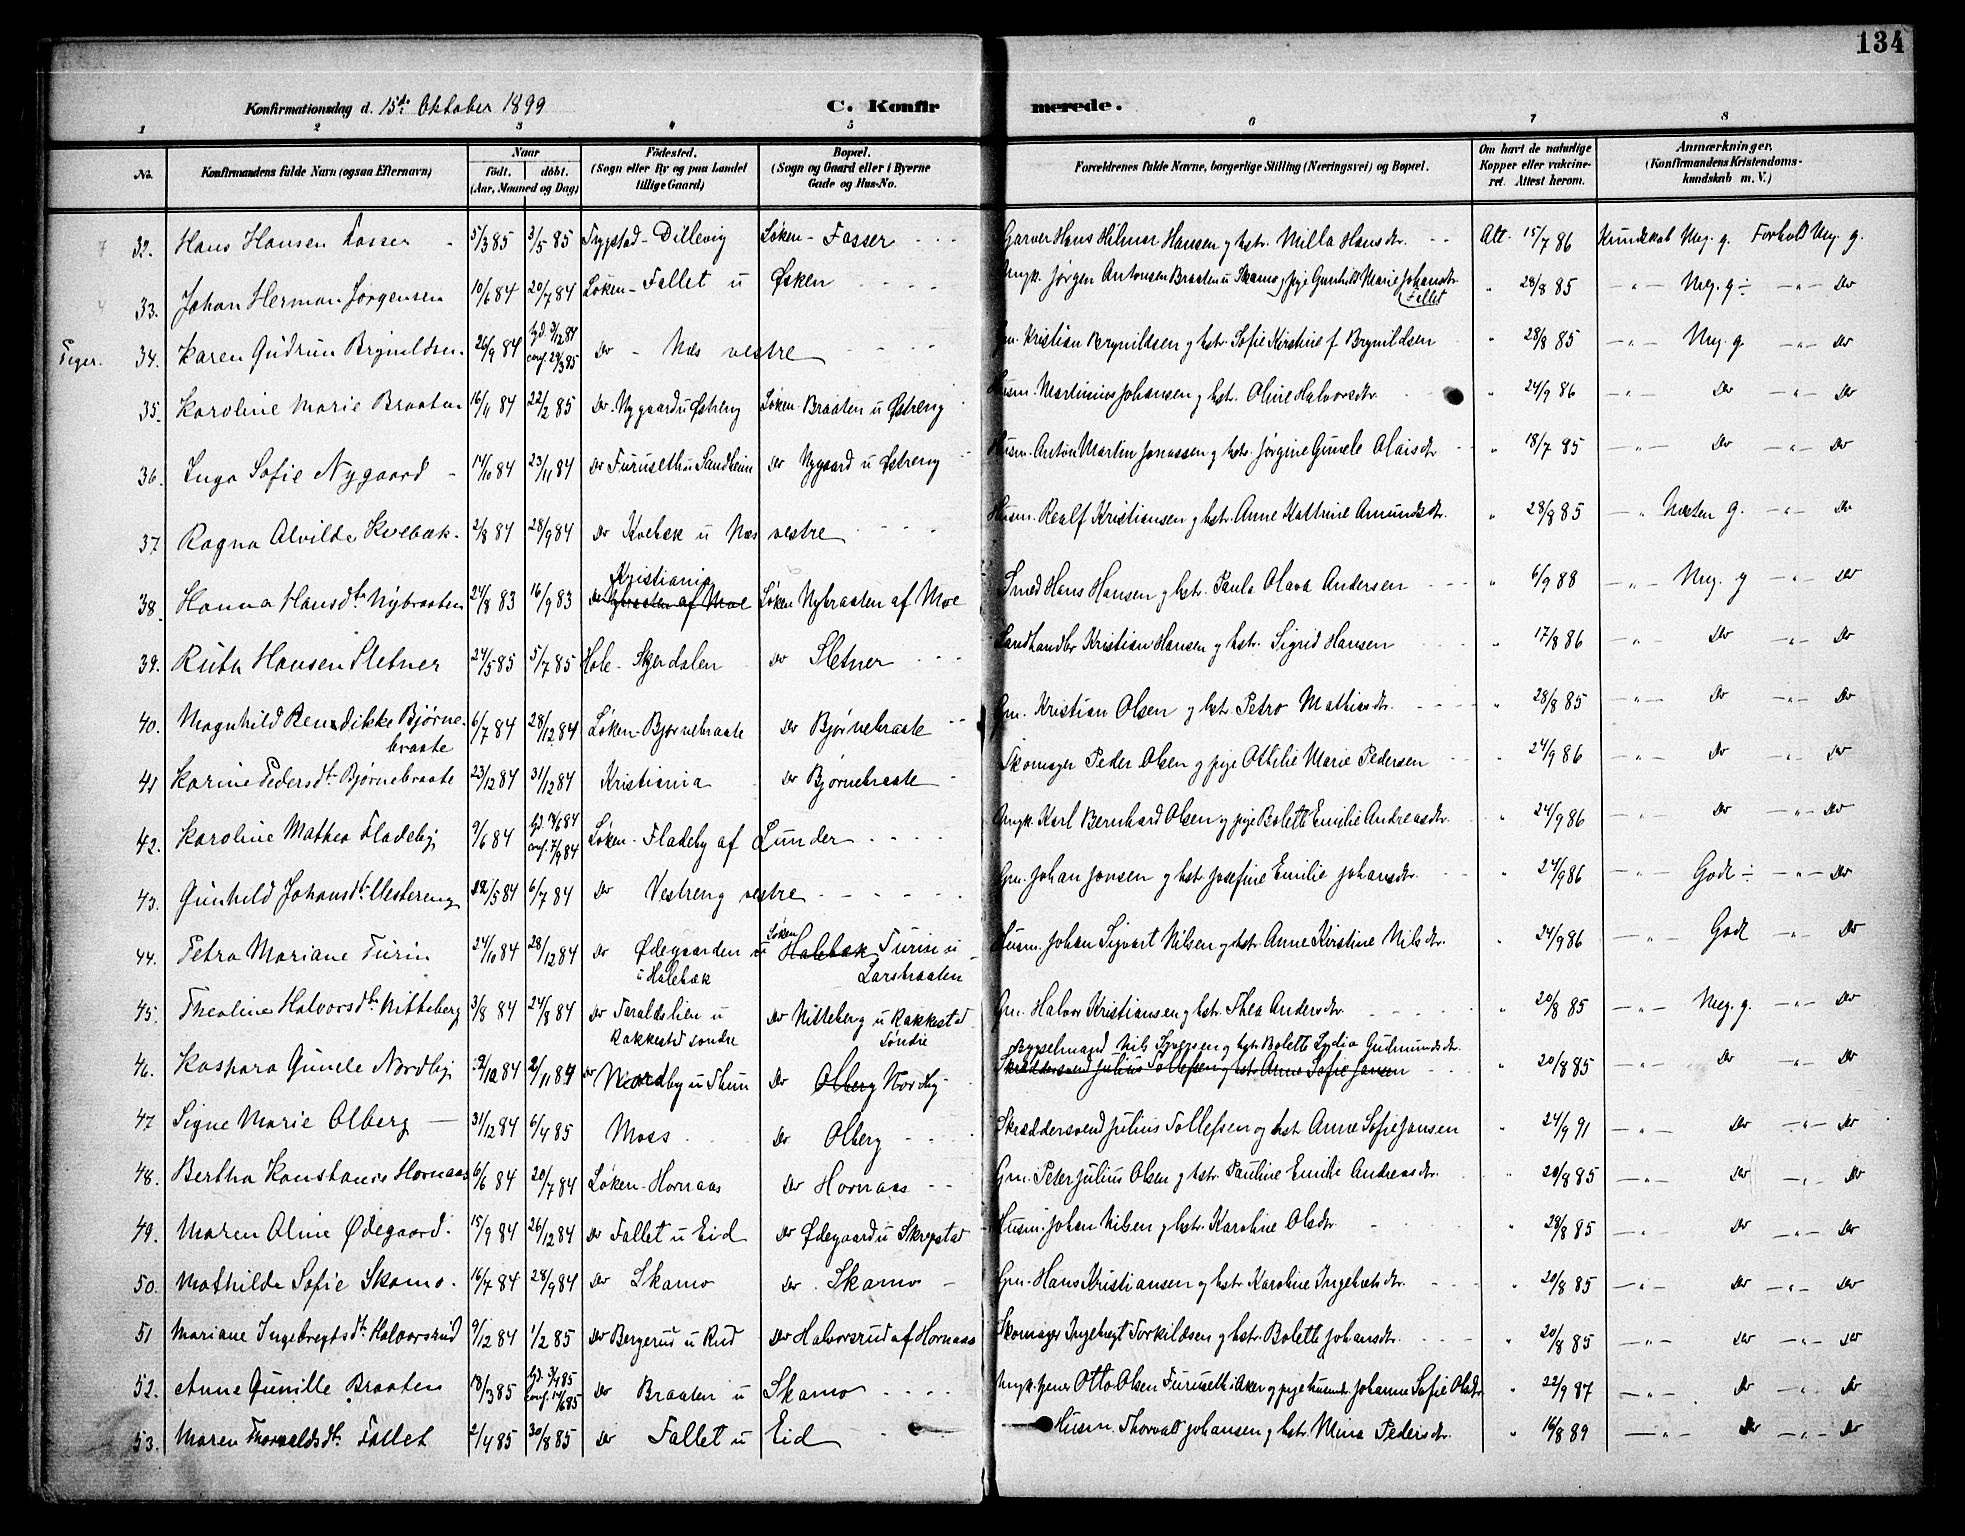 134
Konfirmationsdag d. 15de Oktober 1899
C. Konfirmerede.
1 2 3 4 5 6 7 8
No. Konfirmandens fulde Navn (ogsaa Efternavn) Naar født. døbt. (Aar, Maaned og Dag) Fødested. (Sogn eller By og paa Landet tillige Gaard) Bopæl. (Sogn og Gaard eller i Byerne Gade og Hus-No. Forældrenes fulde Navne, borgerlige Stilling (Næringsvei) og Bopæl. Om havt de naturlige Kopper eller vakcineret. Attest herom. Anmærkninger. (Konfirmandens Kristendomskundskab m. V.)
32. Hans Hansen Fosser 5/3 85 3/5 85 Trygstad - Dillevig Løken - Fosser Garver Hans Hilmar Hansen og hstr. Milla Hansdtr. Att. 15/7 86 Kundskab Meg. g. Forhold Meg. g.
33. Johan Herman Jørgensen 10/6 84 20/7 84 Løken - Fallet u Øsken Ungk. Jørgen Antonsen Braaten u Skamo og pige Gunhild Marie Johansdtr Fallet " 28/8 85 — " — Meg. g ÷ — " — Do
Piger. 34. Karen Gudrun Brynildsen 26/9 84 hjd. 3/12 84 conf. 29/3 85 Do - Næs vestre Gm. Kristian Brynildsen og hstr. Sofie Kirstine f. Brynildsen " 28/8 85 — " — Meg. g. — " — Do
35. Karoline Marie Braaten 16/11 84 22/2 85 Do. Nygaard u Østreng Løken - Braaten u Østreng Husm. Martinius Johansen og hstr. Oline Halvorsdtr. " 24/9 86 — " — Do — " — Do
36. Inga Sofie Nygaard 14/10 84 23/11 84 Do Furuseth u Sandheim Do Nygaard u Østreng Husm. Anton Martin Jonassen og hstr. Jørgine Gunele Olaisdtr " 18/7 85 — " — Do — " — Do
37. Ragna Alvilde Kvebæk. 2/8 84 28/9 84 Do Kvebæk u Næs vestre Husm. Realf Kristiansen og hstr. Anne Kathrine Amundsdtr. " 28/8 85 — " Næsten g. — " — Do
38. Hanna Hansdtr Nybraaten 24/8 83 16/9 83 Kristiania Do Nybraaten af Moe Løken Nybraaten af Moe Smed Hans Hansen og hstr. Paula Olava Andersen " 6/9 88 — " — Meg. g — " — Do
39. Ruth Hansen Sletner 24/5 85 5/7 85 Hole - Skjerdalen Do Sletner Landhandler Kristian Hansen og hstr. Sigrid Hansen " 17/8 86 — " — Do — " — Do
40. Magnhild Bendikke Bjørnebraate 6/7 84 28/12 84 Løken - Bjørnebraate Do Bjørnebraate Gm. Kristian Olsen og hstr. Petra Mathiasdtr. " 28/8 85 — " — Do — " — Do
41 Karine Pedersdtr Bjørnebraate 23/12 84 31/12 84 Kristiania Do Bjørnebraate Skomager Peder Olsen og pige Ottilie Marie Pedersen " 24/9 86 — " — Do — " — Do
42. Karoline Mathea Fladeby 9/6 84 conf. 7/9 84 Løken - Fladeby af Lunder Ungk. Karl Bernhard Olsen og pige Bolette Emilie Andreasdtr. " 24/9 86 — " — Do — " — Do
43. Gunhild Johansdtr Vestereng 12/5 84 6/7 84 Do Vestreng vestre Gm. Johan Jonsen og hstr. Josefine Emilie Johansdtr. " 24/9 86 — " — Godt ÷ — " — Do
44. Petra Mariane Turin 24/10 84 28/12 84 Do Ødegaarden u u Halebæk Løken Halebæk Turin u Larsbraaten Husm. Johan Sigvart Nilsen og hstr. Anne Kirstine Nilsdtr. " 24/9 86 — " — Godt — " — Do
45. Thealine Halvorsdtr Nitteberg 3/8 84 24/8 84 Do Taraldslien u Rakkestad søndre Do Nitteberg u Rakkestad Søndre Gm. Halvor Kristiansen og hstr. Thea Andersdtr. " 20/8 85 — " — Meg. g. — " — Do
46. Kaspara Gunele Nordby 2/10 84 2/11 84 Do Nordby u Thun Do Olberg Nordby Bygselmand Nils Syversen og hstr. Bolette Lydia Gudmundsdtr. Skræddersvend Julius Tollefsen og hstr. Anne Sofie Jansen " 20/8 85 — " — Do — " — Do
47 Signe Marie Olberg 31/12 84 6/4 85 Moss Do Olberg Skræddersvend Julius Tollefsen og hst. Anne Sofie Jansen " 24/9 91 — " — Do — " — Do
48. Bertha Konstanse Hornaas 6/6 84 20/7 84 Løken - Hornaas Do Hornaas Gm. Peter Julius Olsen og hstr. Pauline Emilie Andreasdtr. " 20/8 85 — " — Do — " — Do
49. Maren Oline Ødegaard. 15/9 84 26/12 84 Do Fallet u Eid Do Ødegaard u Skrepstad Husm. Johan Nilsen og hstr. Karoline Olsdtr. " 28/8 85 — " — Do — " — Do
50. Mathilde Sofie Skamo. 16/7 84 28/9 84 Do Skamo Do. Skamo Gm. Hans Kristiansen og hstr. Karoline Ingebretsdtr. " 20/8 85 — " — Do — " — Do
51 Mariane Ingebregtsdtr Halvorsrud 9/12 84 1/2 85 Do Bergerud u Rud Do Halvorsrud af Hornaas Skomager Ingebregt Torkildsen og hstr. Bolette Johansdtr. " 20/8 85 — " — Do — " — Do
52. Anne Gunille Braaten 18/3 85 Do Braaten u Skamo Ungk. tjener Otto Olsen Furuseth i Aker og pige Johanne Sofie Olsdtr " 22/9 87 — " — Do — " — Do
53. Maren Thorvaldsdtr. Fallet 2/4 85 30/8 85 Do Fallet u Eid Husm. Thorvald Johansen og hstr. Mina Pedersdtr. " 16/8 89 — " — Do — " — Do